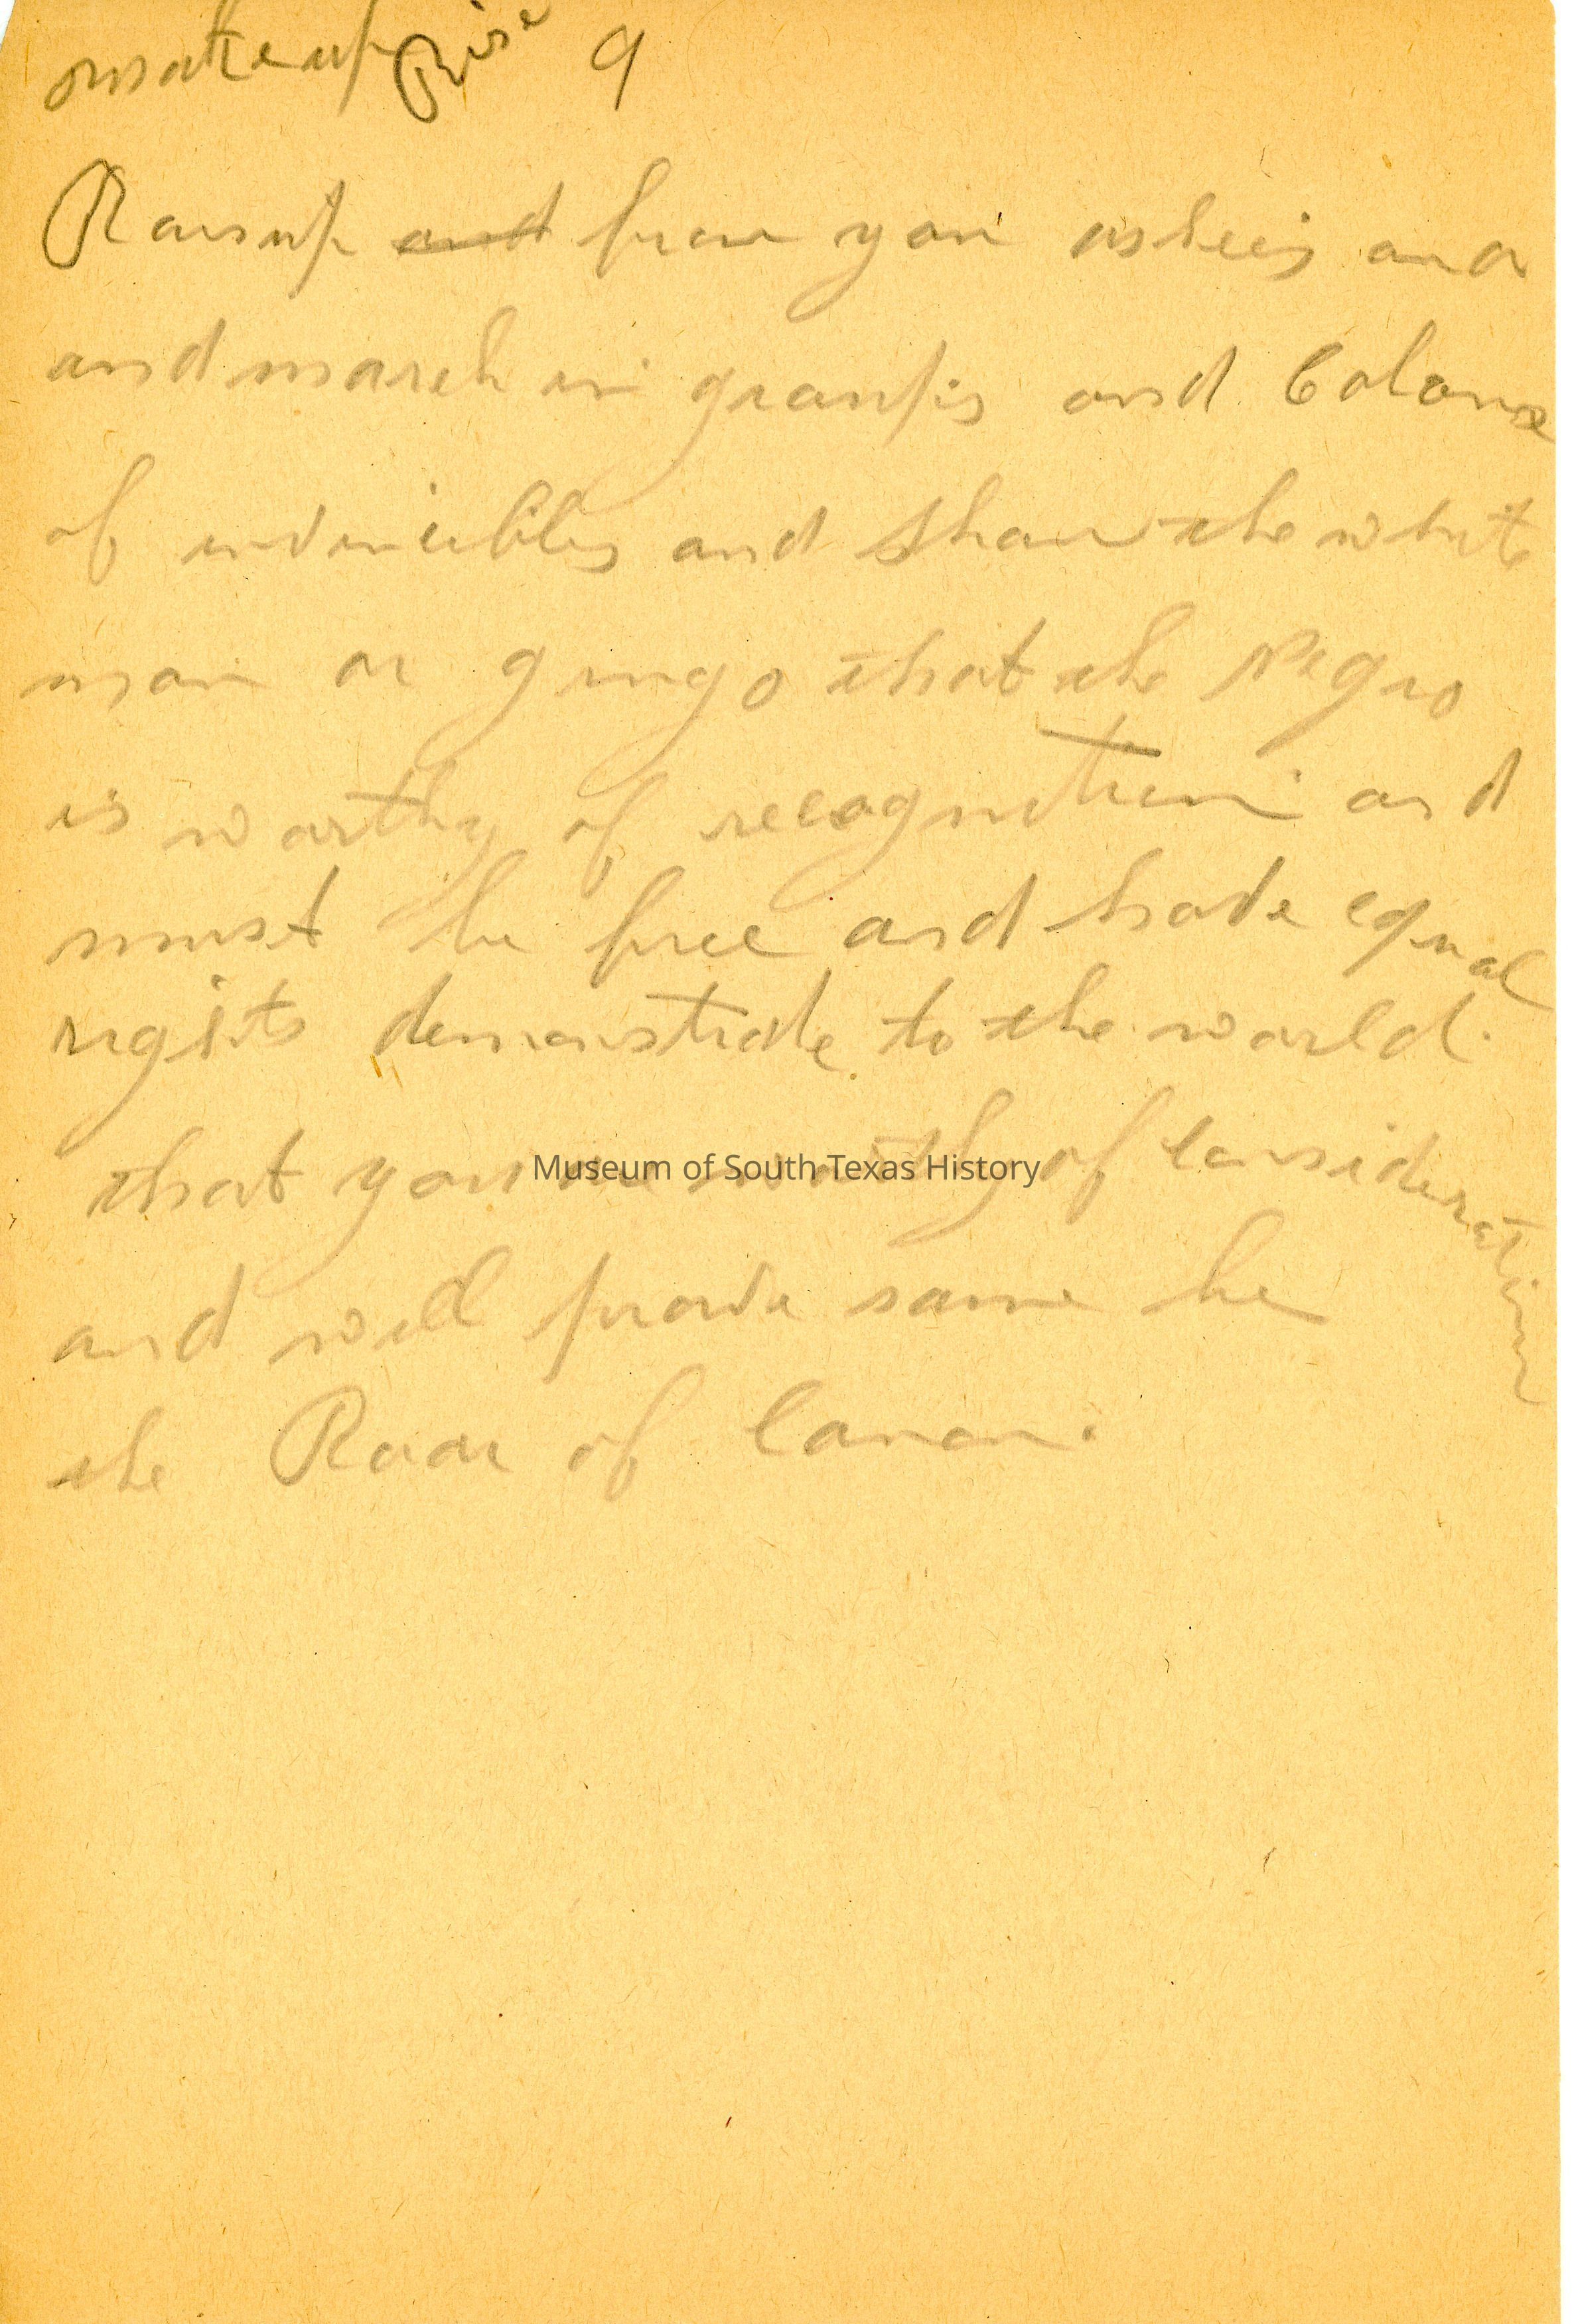 wake up Rise 9
Raisup and from you ashees and
and march in groups and Colums
of invincibles and show the white
man or gringo that the Negro
is worthy of recognition and
must be free and have equal
rights demonstrate to the world
that you are worthy of consideration
and will prove same be
the Roar of Canon.
Museum of South Texas History